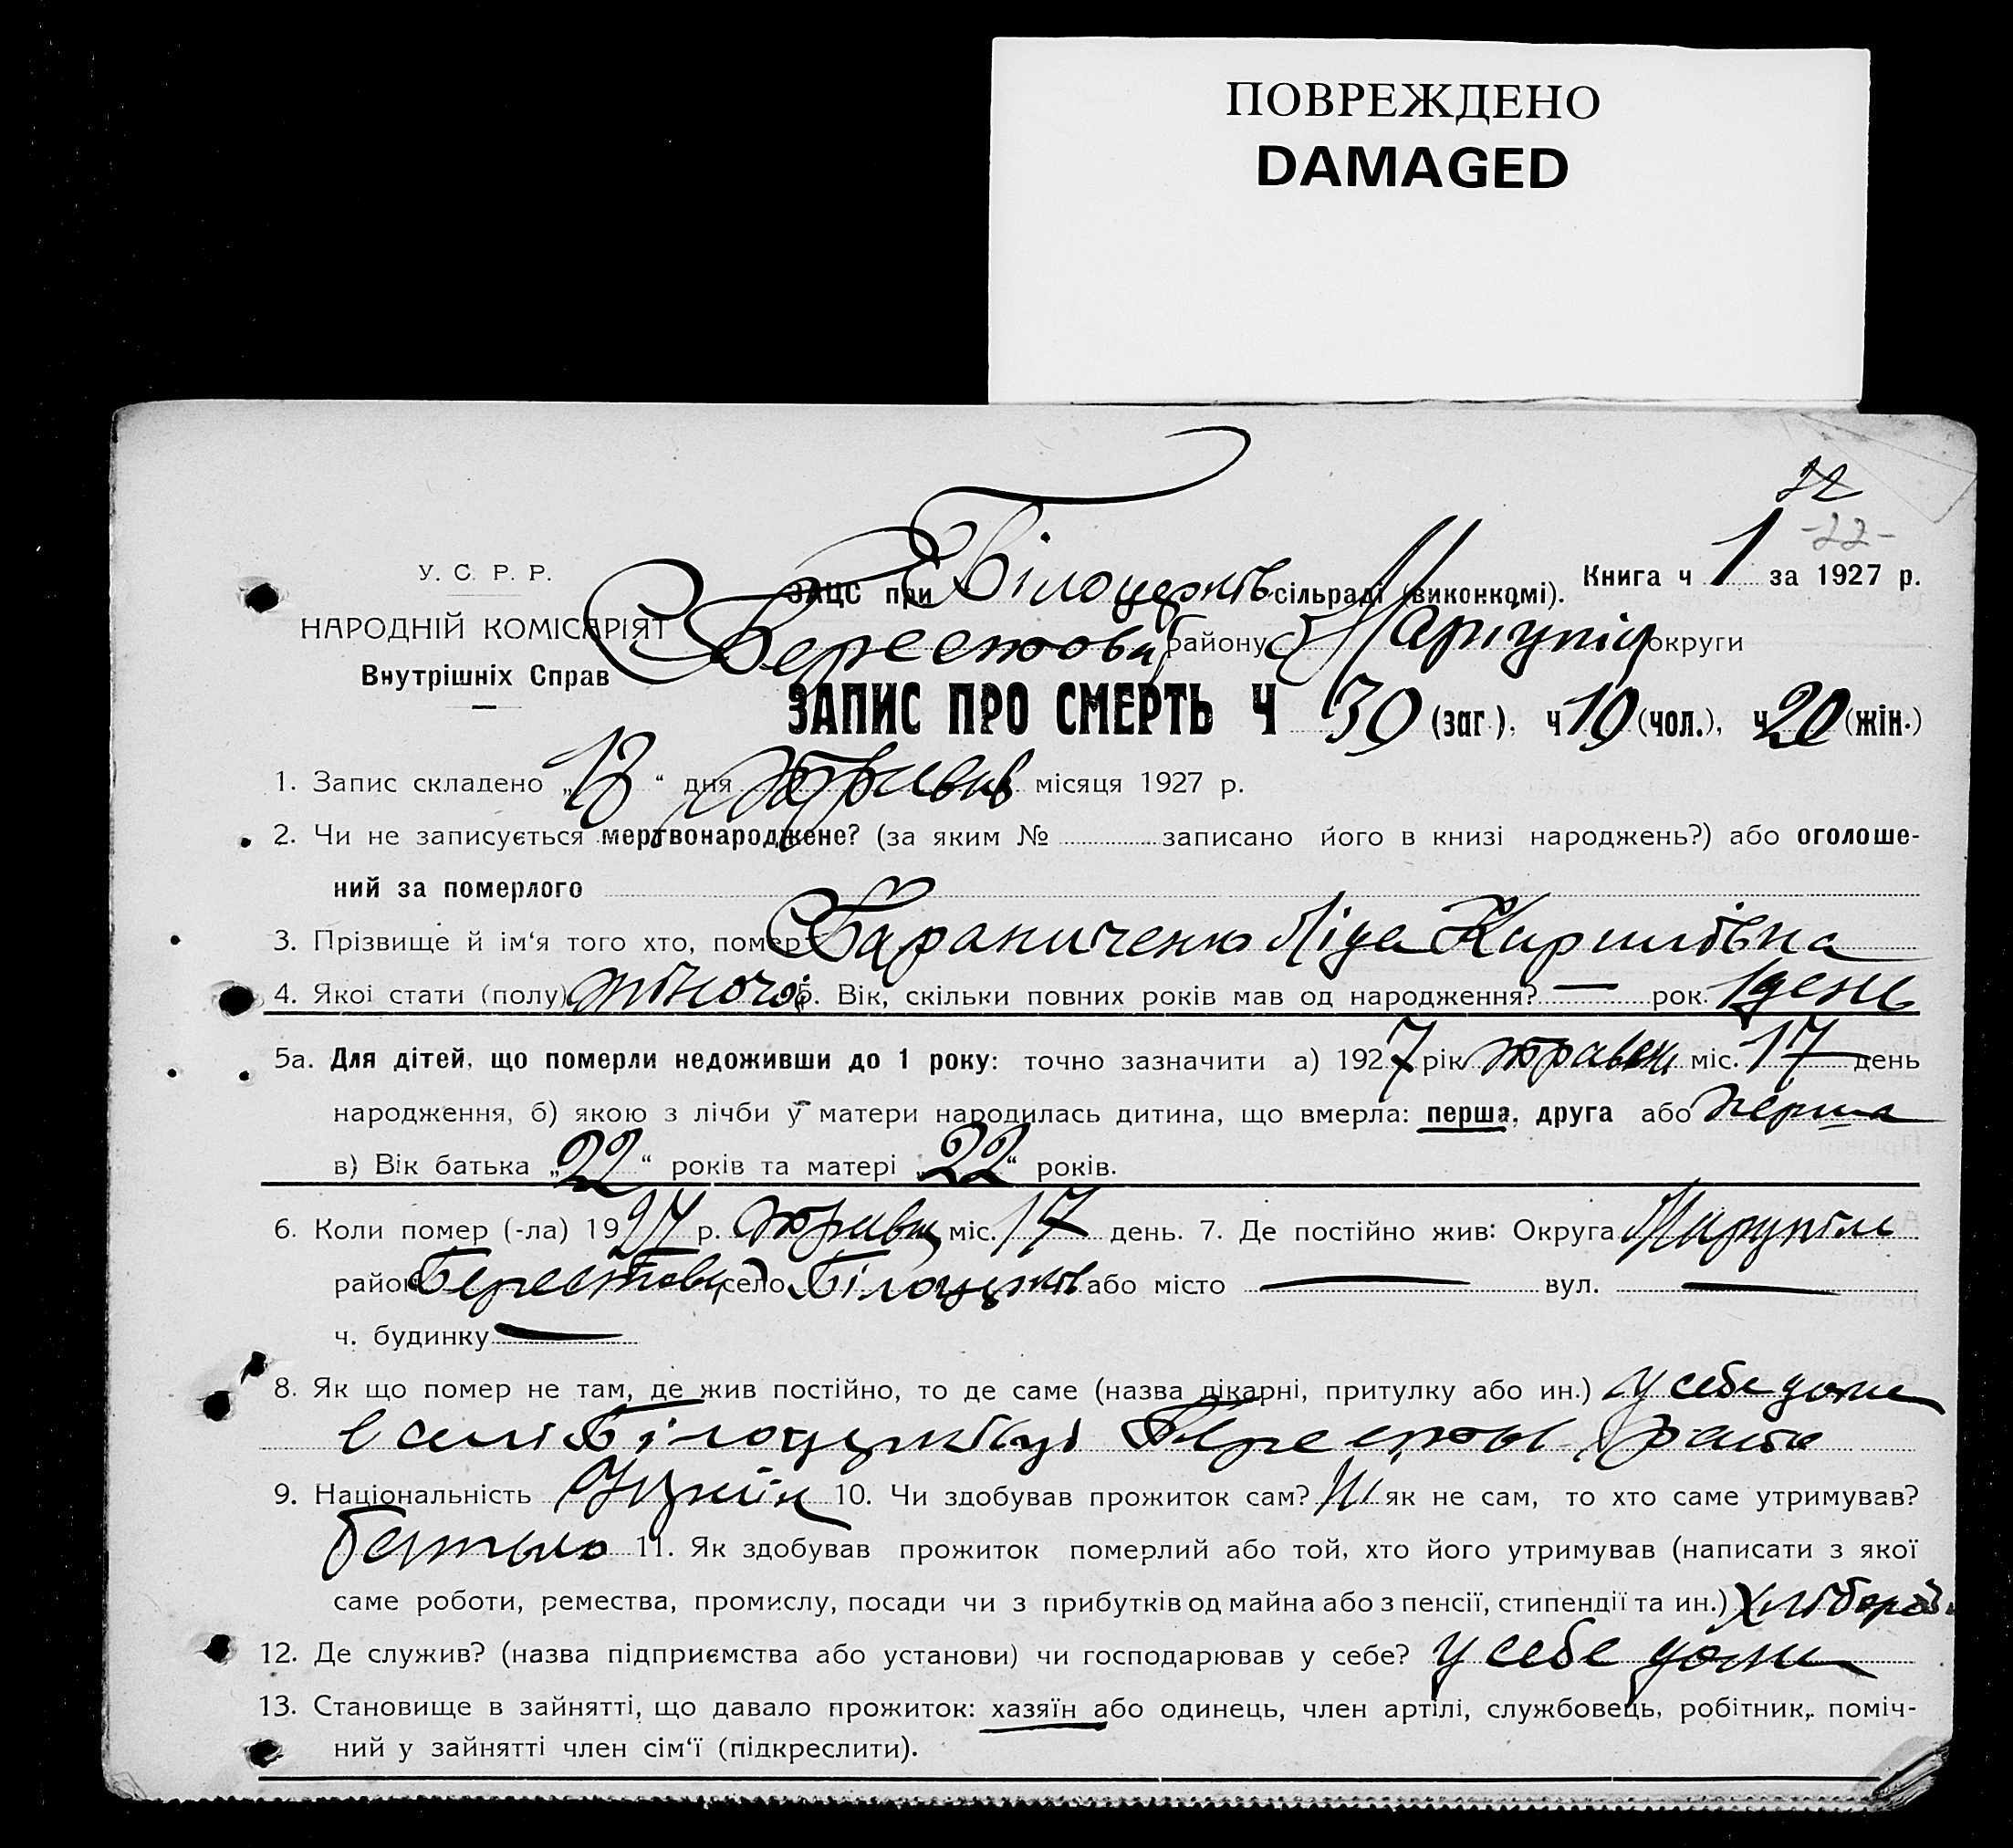 ПОВРЕЖДЕНО
DAMAGED
22
-22-
У. С. Р. Р.
НАРОДНІЙ КОМІСАРІЯТ
Внутрішніх Справ
ЗАЦС при Білоцерків сільраді (виконкомі). Книга ч 1 за 1927 р.
Берестовец району Маріупіл округи
ЗАПИС ПРО СМЕРТЬ Ч 30 (заг.), ч 10 (чол.), ч 20 (жін.)
1. Запис складено „ “ дня травня місяця 1927 р.
2. Чи не записується мертвонароджене? (за яким № записано його в книзі народжень?) або оголоше-
ний за померлого
3. Прізвище й ім‘я того хто, помер Бараниченко Ліда Кирилівна
4. Якої стати (полу) жіночої 5. Вік, скільки повних років мав од народження? — рок. 1 день
5а. Для дітей, що померли недоживши до 1 року: точно зазначити а) 1927 рік травень міс. 17 день
народження, б) якою з лічби у матери народилась дитина, що вмерла: перша, друга або перша
в) Вік батька „22“ років та матері „22“ років.
6. Коли помер (-ла) 1927 р. травня міс. 17 день. 7. Де постійно жив: Округа Маріупіль
район Берестовец село Білоцерків або місто — вул. —
ч. будинку —
8. Як що помер не там, де жив постійно, то де саме (назва лікарні, притулку або ин.) у себе дома
в селі Білоцерківці Берестов. району
9. Національність 10. Чи здобував прожиток сам? Ні як не сам, то хто саме утримував?
батько 11. Як здобував прожиток померлий або той, хто його утримував (написати з якої
саме роботи, ремества, промислу, посади чи з прибутків од майна або з пенсії, стипендії та ин.) хлібороб.
12. Де служив? (назва підприємства або установи) чи господарював у себе? у себе дома
13. Становище в зайнятті, що давало прожиток: хазяїн або одинець, член артілі, службовець, робітник, поміч-
ний у зайнятті член сім‘ї (підкреслити).